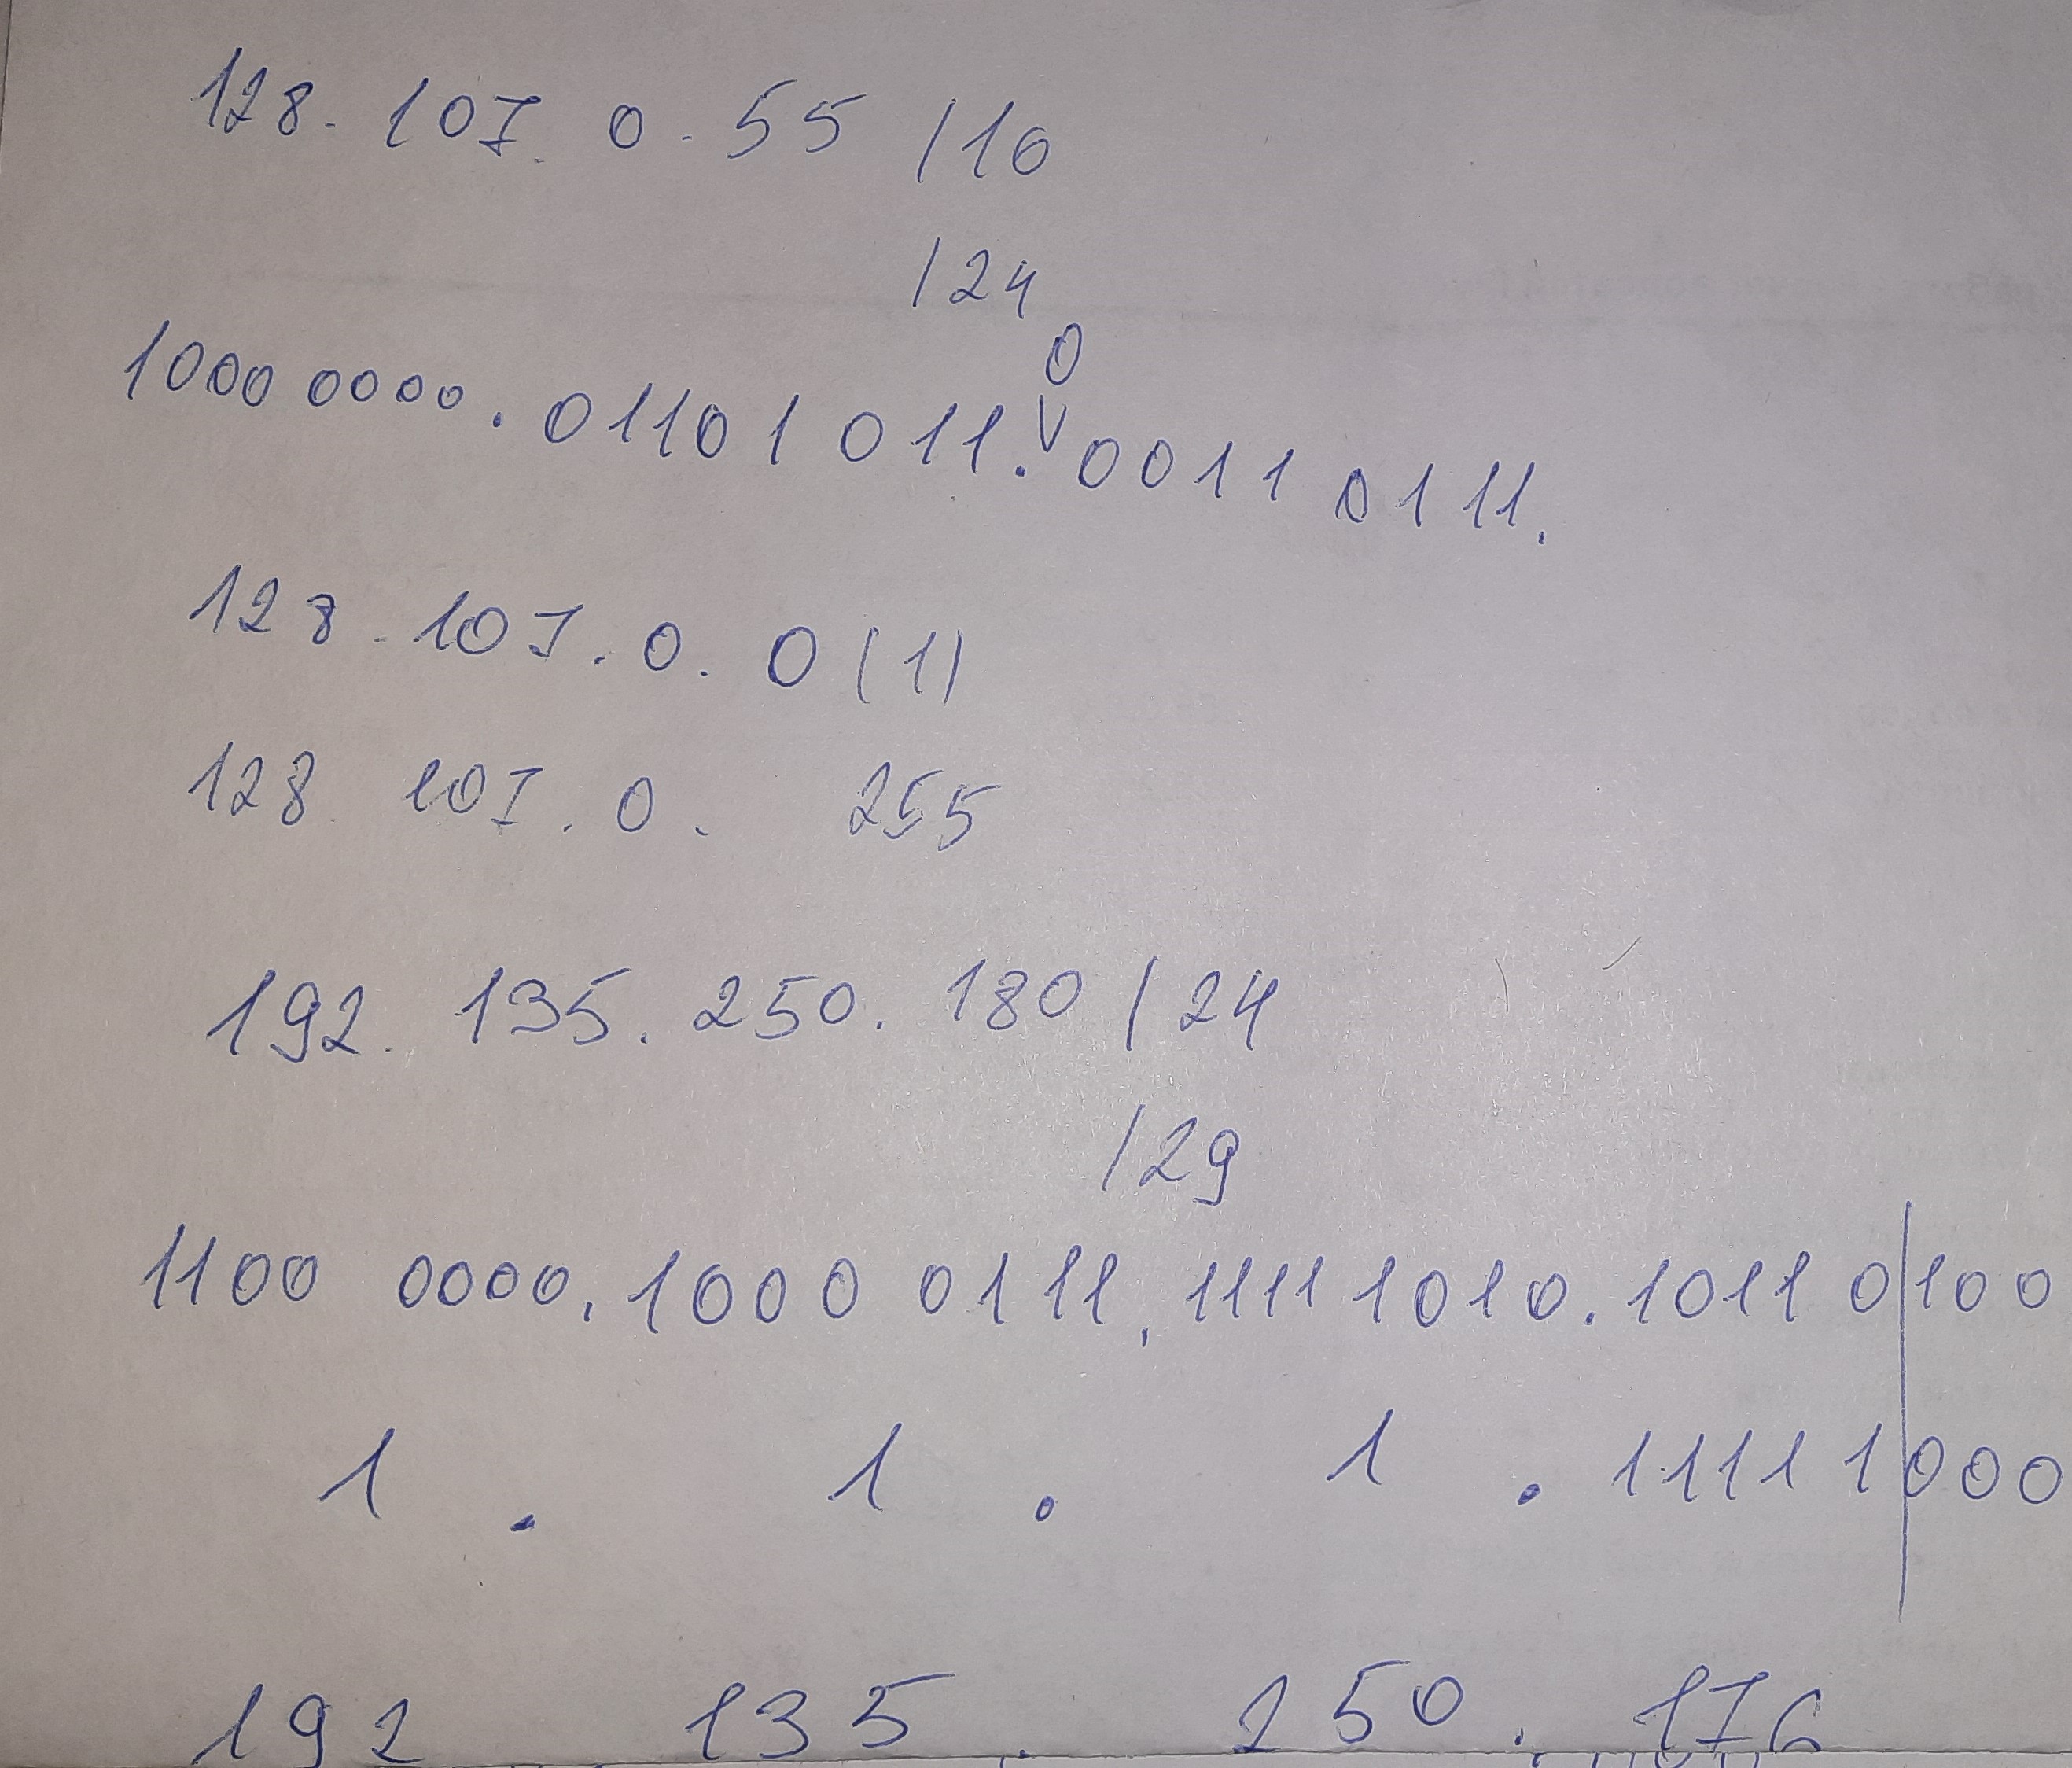 128. 107. 0. 55 /16
/24
0
1000 0000. 01101 011. V 0011 0111.
128. 107. 0. 0 (1)
128. 107. 0. 255
192. 135. 250. 180 /24
/29
1100 0000. 1000 0111. 1111 1010. 1011 0|100
1 . 1 . 1 . 1111 1|000
192 135 . 250 . 176